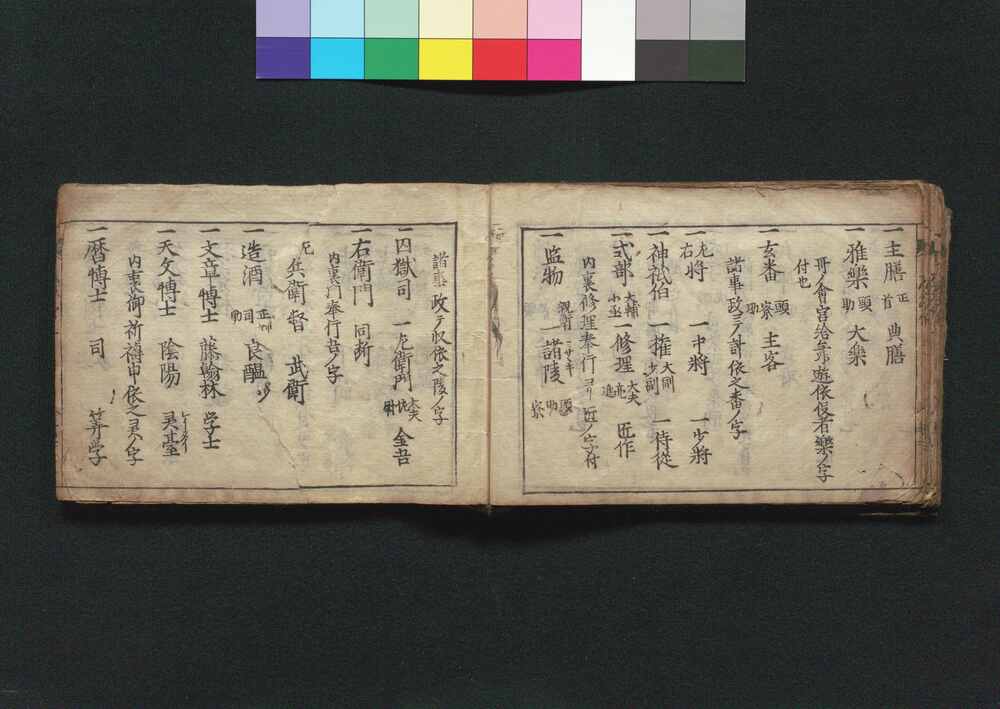 一主膳 正 首 典膳
一雅樂 頭 助 大樂
付也
一玄番 頭 寮 助 主客
諸事政ヲ計依之番ノ字
一左右將 一中將 一少將
一神祇伯 一權 大副 少副 一侍從
一式部 大輔 小丞 一修理 大夫 亮 進 匠作
内裏修理奉行 匠ノ字付
一監物 一諸陵 頭 助 寮
諸事政テ収依之陵ノ字
一囚獄司 一左衛門 大夫 佐 尉 金吾
一右衛門 同断
内裏門奉行吾ノ字
左兵衛督 武衛
一造酒 正 司 助 良醞
一文章博士 藤翰林 学士
一天文博士 陰陽 灵臺
内裏御祈祷申依之灵ノ字
一暦博士 司 筭学